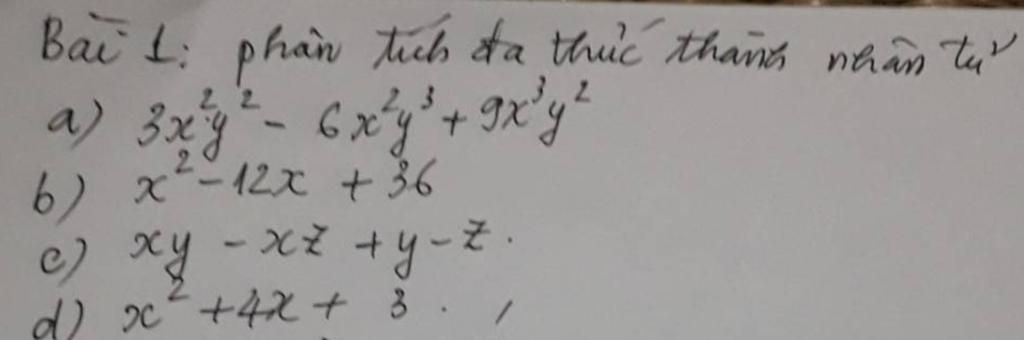 Bài 1: phân tích đa thức thành nhân tử
a) 3x²y² - 6x²y³ + 9x³y²
b) x² - 12x + 36
c) xy - xz + y - z.
d) x² + 4x + 3.